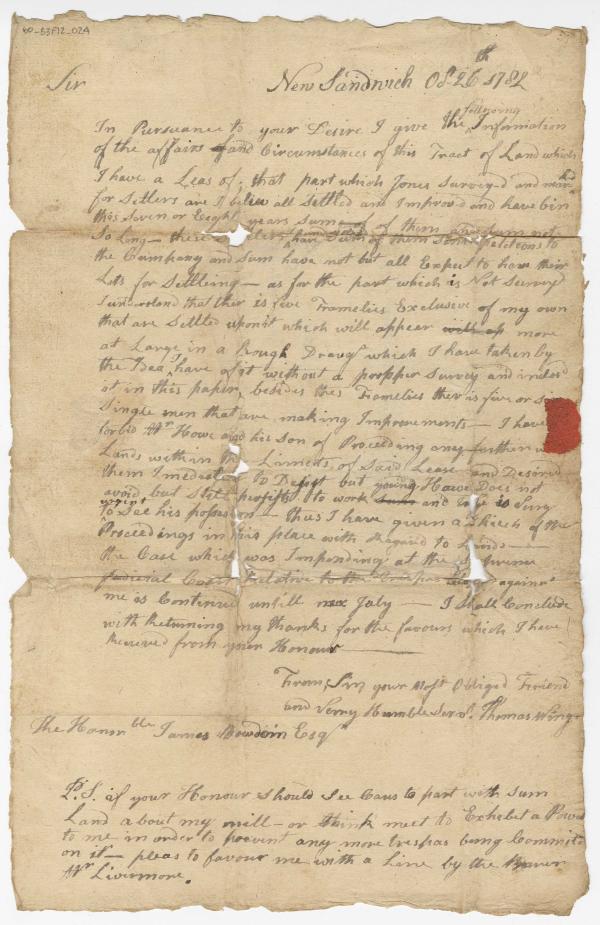 60-53F12_02A
Sir New Sandwich Oct 26th 1782
In Pursuance to your Desire I give the following Information
of the affairs and Circumstances of this Tract of Land which
I have a Leas of, that part which Jones Survey.d and markd
for Setlers are I belev all Setled and Improv.d and have bin
this Seven or Eight years Sum of them
So long — these have Sum of them Petetions to
the Cumpany and Sum have not but all Expect to have their
Lots for Settleing — as for the part which is Not Survey.d
I understand that ther is five Framelies Exclusive of my own
that are Settled upon it which will appear more
at Large in a Rough Draugt which I have taken by
the Idea I have of it without a propper Survey and inclosd
it in this paper, besides thes Framelies ther is five or
Single men that are making Improvements — I have
forbid Mr Howe and his Son of Proceeding any further
Lands within the Limeits of Said Lease and Desired
them Imediately to Desist but young Howe Does not
avoid but Still persists to work and
to See his — thus I have given a Skech of the
Proceedings in this place with Regard to Lands —
the Case which was Impending at the
Judicial Court Relative to the against
me is Continued untill July — I Shall Conclude
with Returning my thanks for the favours which I have
Received from your Honour
From Sir your Most Obliged Friend
and Verry Humble Servt. Thomas Wing
The Honorable James Bowdoin Esqr
P.S. if your Honour Should See Caus to part with Sum
Land about my mill — or think meet to Exhebet a Power
to me in order to prevent any more trespas being Commited
on it — pleas to favour me with a Line by the Bearer
Mr Livermore.